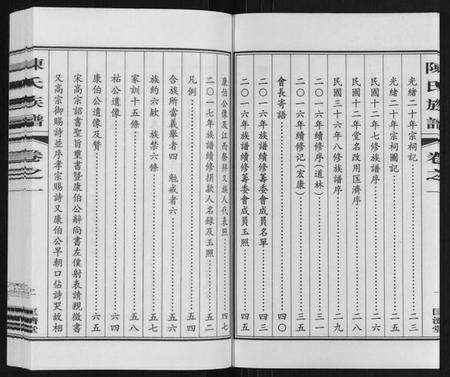 陳氏族譜
卷之一
匡濟堂
光緒二十年宗祠記…二三
光緒二十年宗祠圖記…二五
民國十一年七修族譜序…二六
民國十二年堂名改用匡濟序…二八
民國三十六年八修族譜序…二九
二〇一六年續修序（道林）…三一
二〇一六年續修記（宏康）…三五
會長寄語…四〇
二〇一六年族譜續修籌委會成員名單…四三
二〇一六年族譜續修籌委會成員玉照…四五
康伯公像及江西祭拜人代表照…四七
二〇一七年族譜續修捐款人名錄及玉照…五二
凡例
合族所當義舉者四 勉戒者六
族約六款 族禁六條…五七
家訓十五條…五八
祐公遺像…六四
康伯公遺像及贊…六五
宋高宗詔書聖旨重書暨康伯公辭尚書左僕射表請親微書
又高宗御賜詩並序孝宗賜詩又康伯公早朝口佔詩哭故相
陳氏族譜
卷之一
匡濟堂